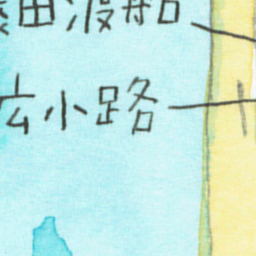 田渡船
広小路